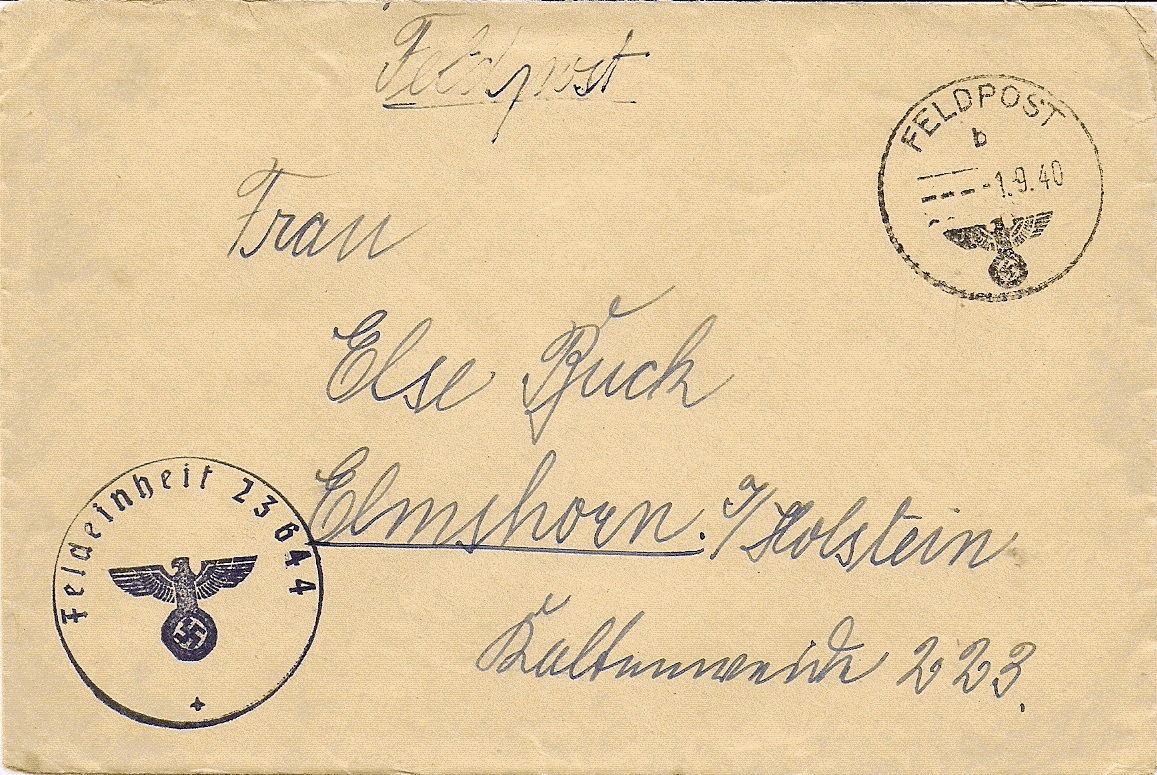 Feldpost
FELDPOST
b
-1.9.40
Frau
Else Buck
Elmshorn. i/Holstein
Kaltenweide 223.
Feldeinheit 23644